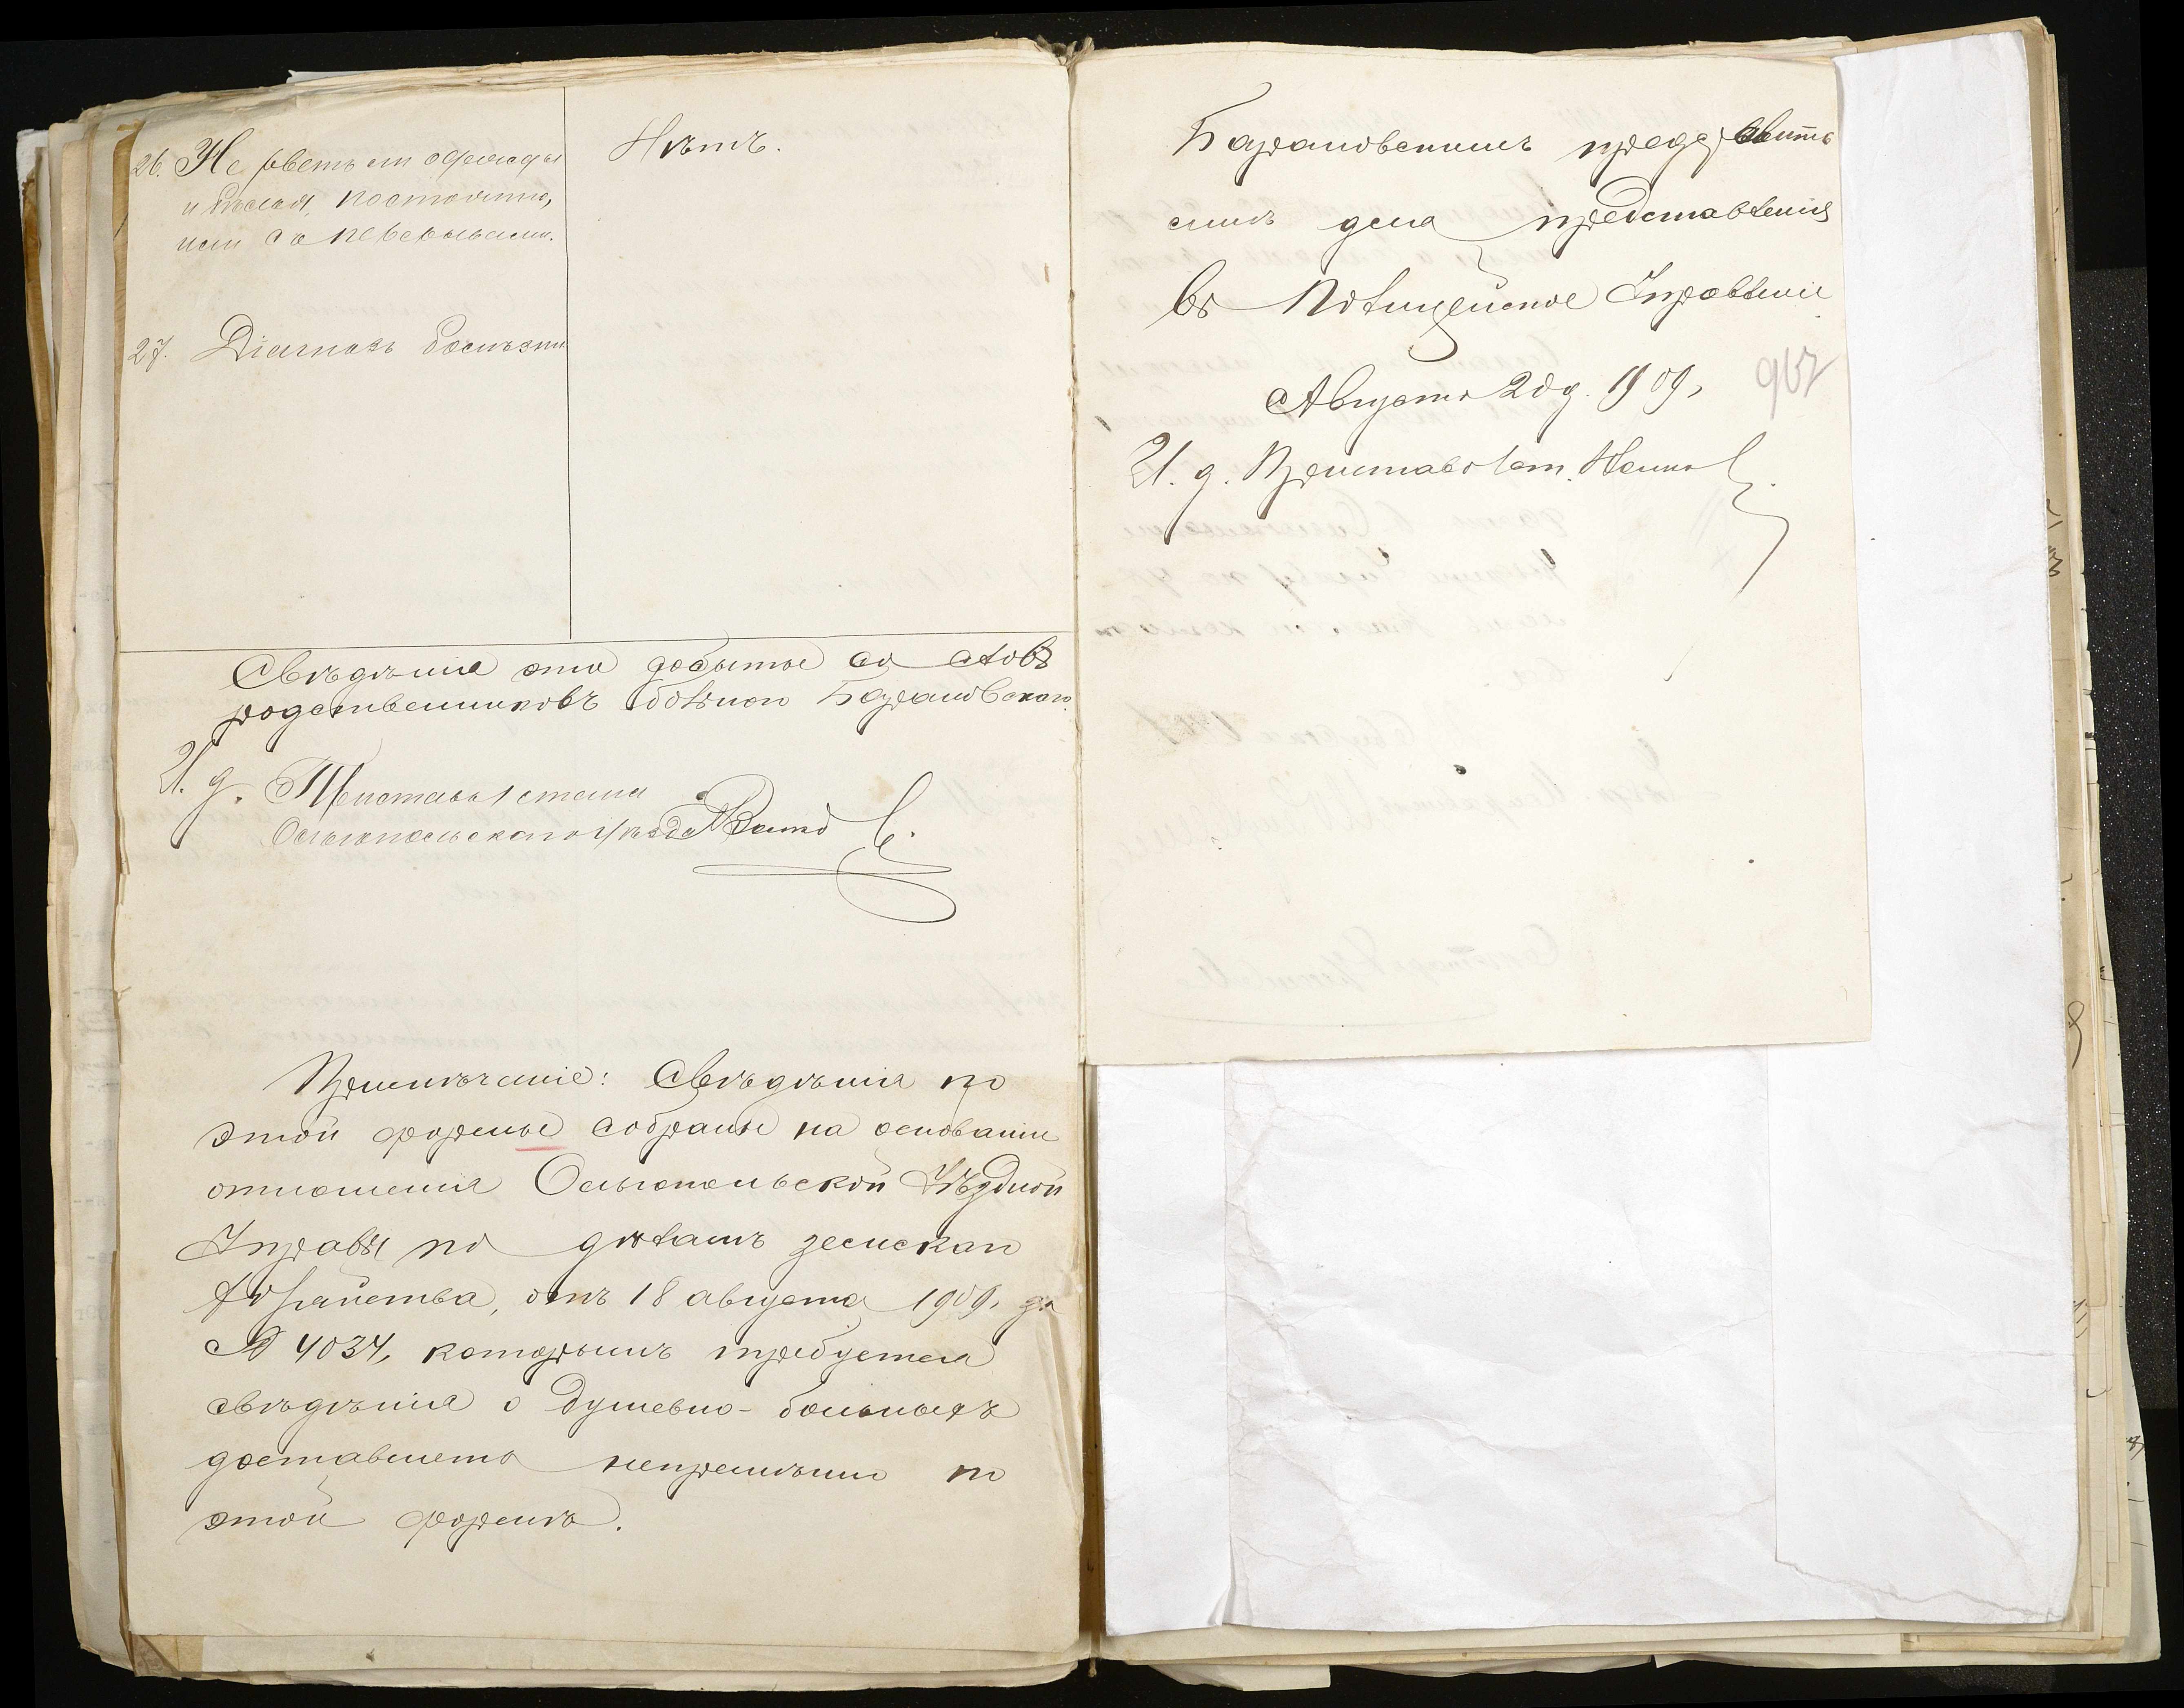 26. Не рветъ ли одежды
и бѣлья, постоянно,
или съ перерывами.
Нѣтъ.
27. Діагнозъ болѣзни
Свѣдѣнія эти добыты со словъ
родственниковъ больного Барановскаго.
И. д. Пристава 1 стана
Ольгопольскаго уѣзда
Примѣчаніе: Свѣдѣнія по
этой формѣ собраны на основаніи
отношенія Ольгопольской Уѣздной
Управы по дѣламъ земскаго
хозяйства, отъ 18 августа 1909 г. за
№ 4034, которымъ требуется
свѣдѣнія о душевно-больныхъ
доставлять непремѣнно по
этой формѣ.
Барановскимъ
для представленія
въ Полицейское Управленіе
Августа 20 д. 1909 г.
И. д. Пристава 1 ст.